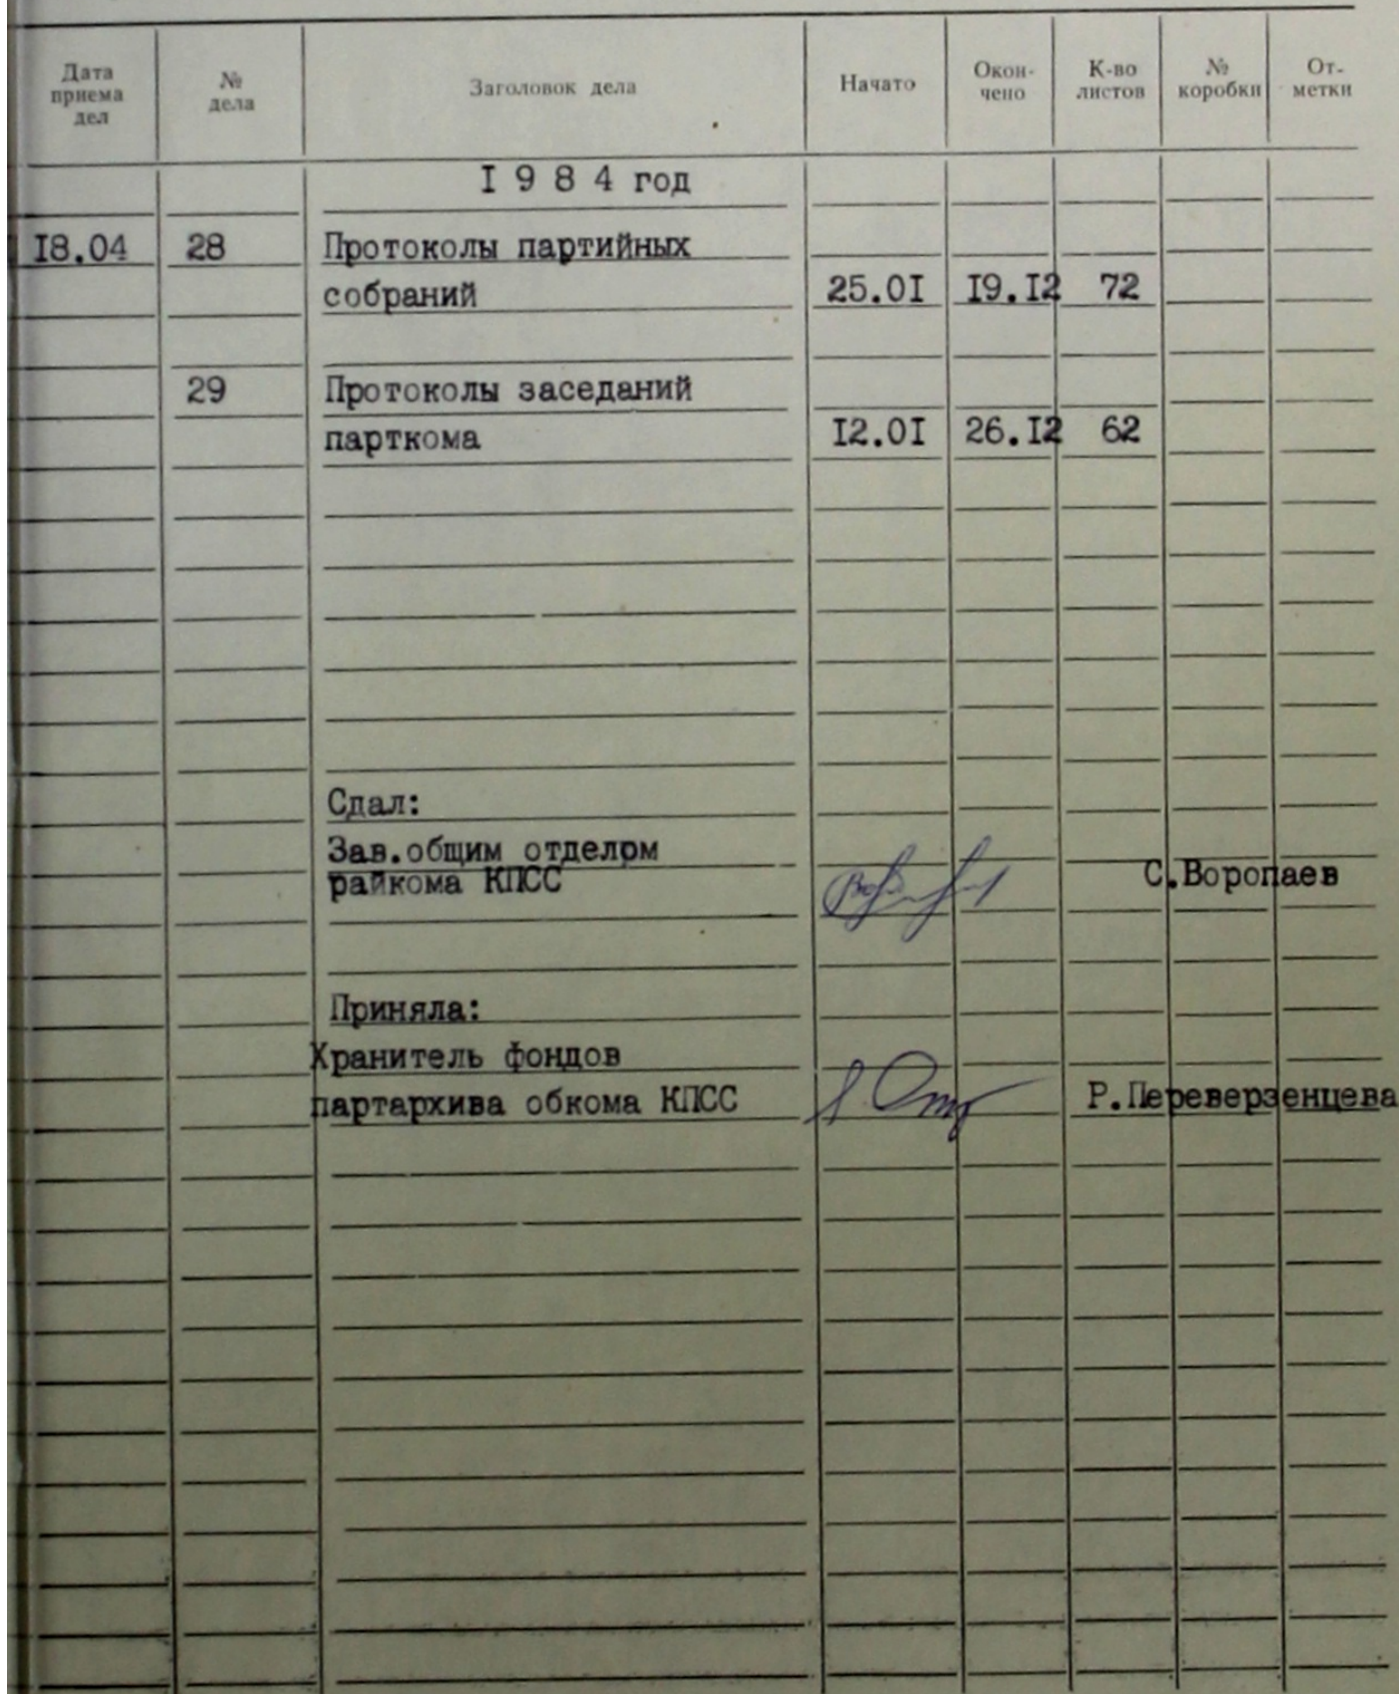 Дата приема дел № дела Заголовок дела Начато Окон- чено К-во листов № коробки От- метки
I 9 8 4 год
I8.04 28 Протоколы партийных
собраний 25.0I I9.I2 72
29 Протоколы заседаний
парткома I2.0I 26.I2 62
Сдал:
Зав.общим отделом
райкома КПСС С.Воропаев
Приняла:
Хранитель фондов
партархива обкома КПСС Р.Переверзенцева